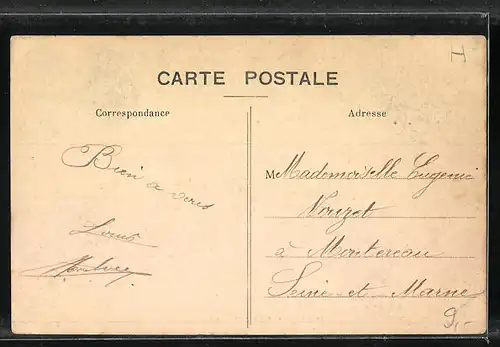 H
CARTE POSTALE
Correspondance
Adresse
Bien a vous
Louis
M Mademoiselle Eugenie
Nouzet
à Montereau
Seine et Marne
9,-